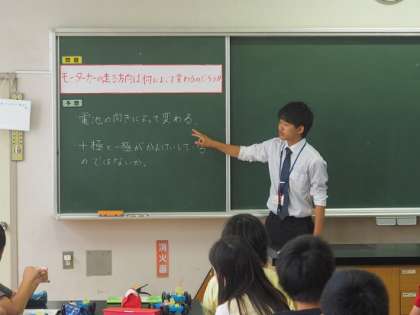 問題
モーターカーの走る方向は何によって変わるのだろうか
予想
電池の向きによって変わる。
+極と-極がかんけいしている
のではないか。
消火器